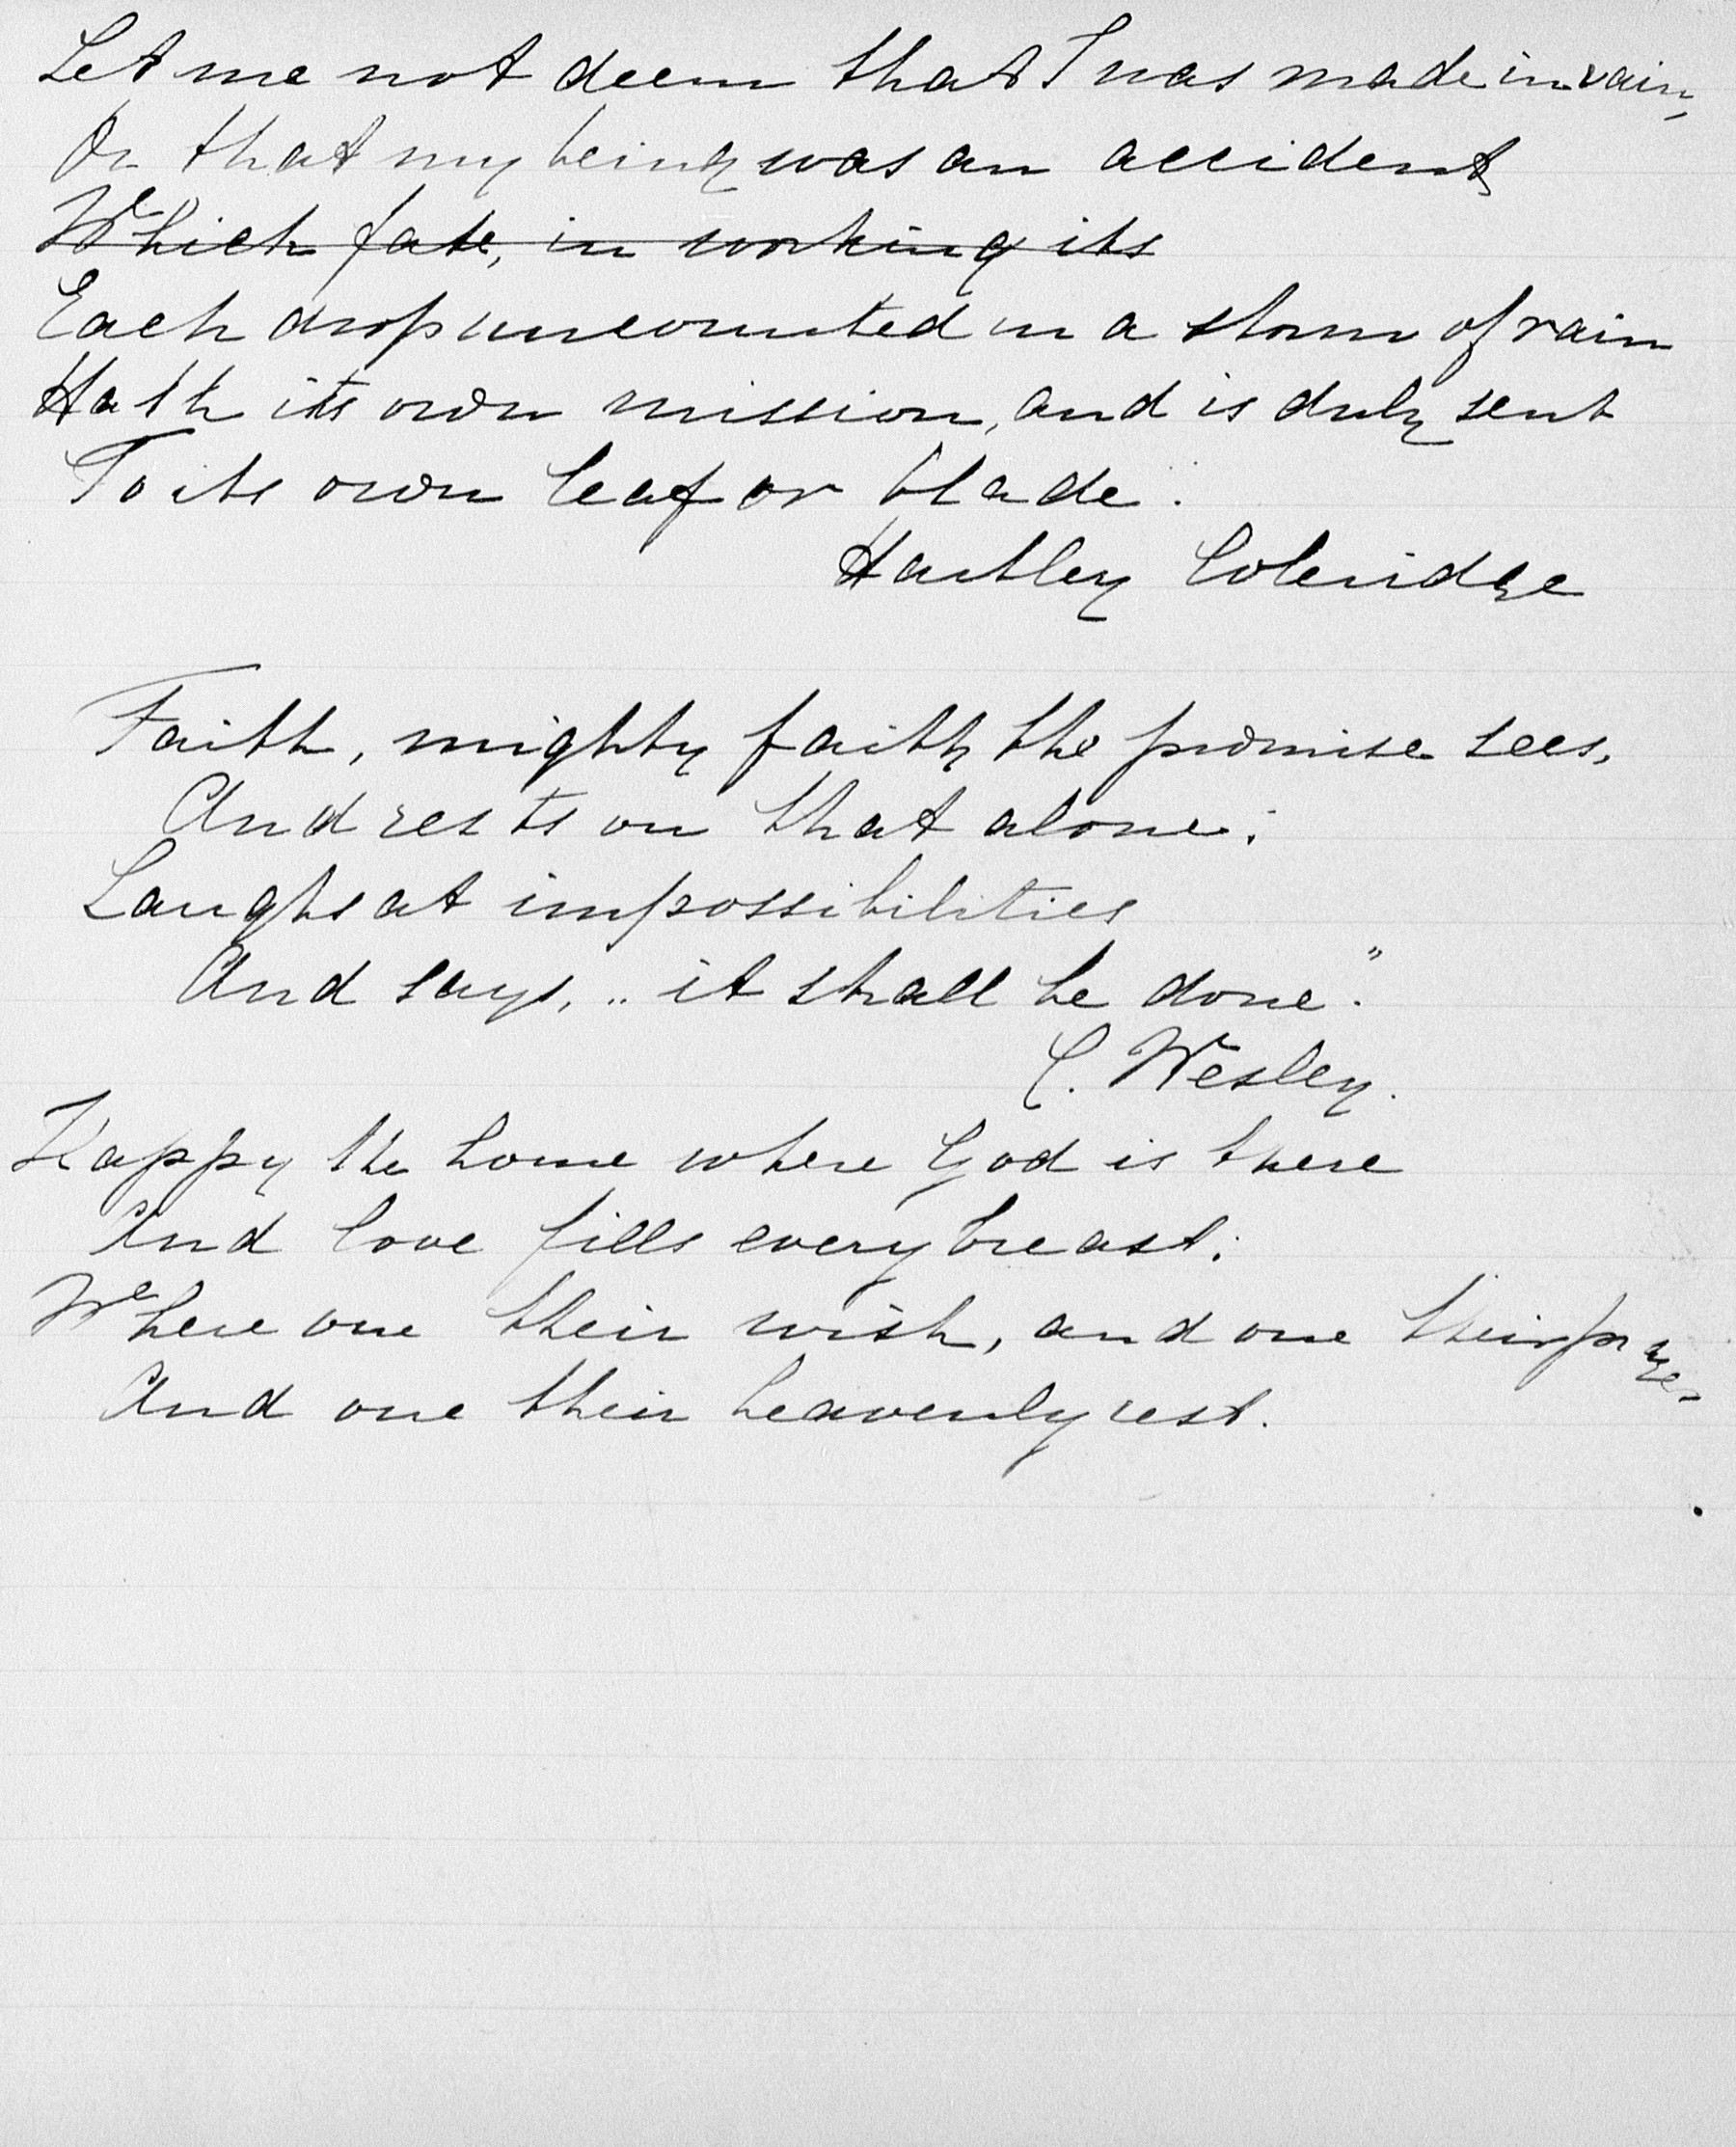 Let me not deem that I was made in vain,
Or that my being was an accident,
Which fate, in working its
Each drop uncounted in a storm of rain
Hath its own mission, and is duly sent
To its own leaf or blade.
Hartley Coleridge
Faith, mighty faith the promise sees,
And rests on that alone;
Laughs at impossibilities
And says, "it shall be done."
C. Wesley.
Happy the home where God is there
And love fills every breast;
Where one their wish, and one their prayer
And one their heavenly rest.